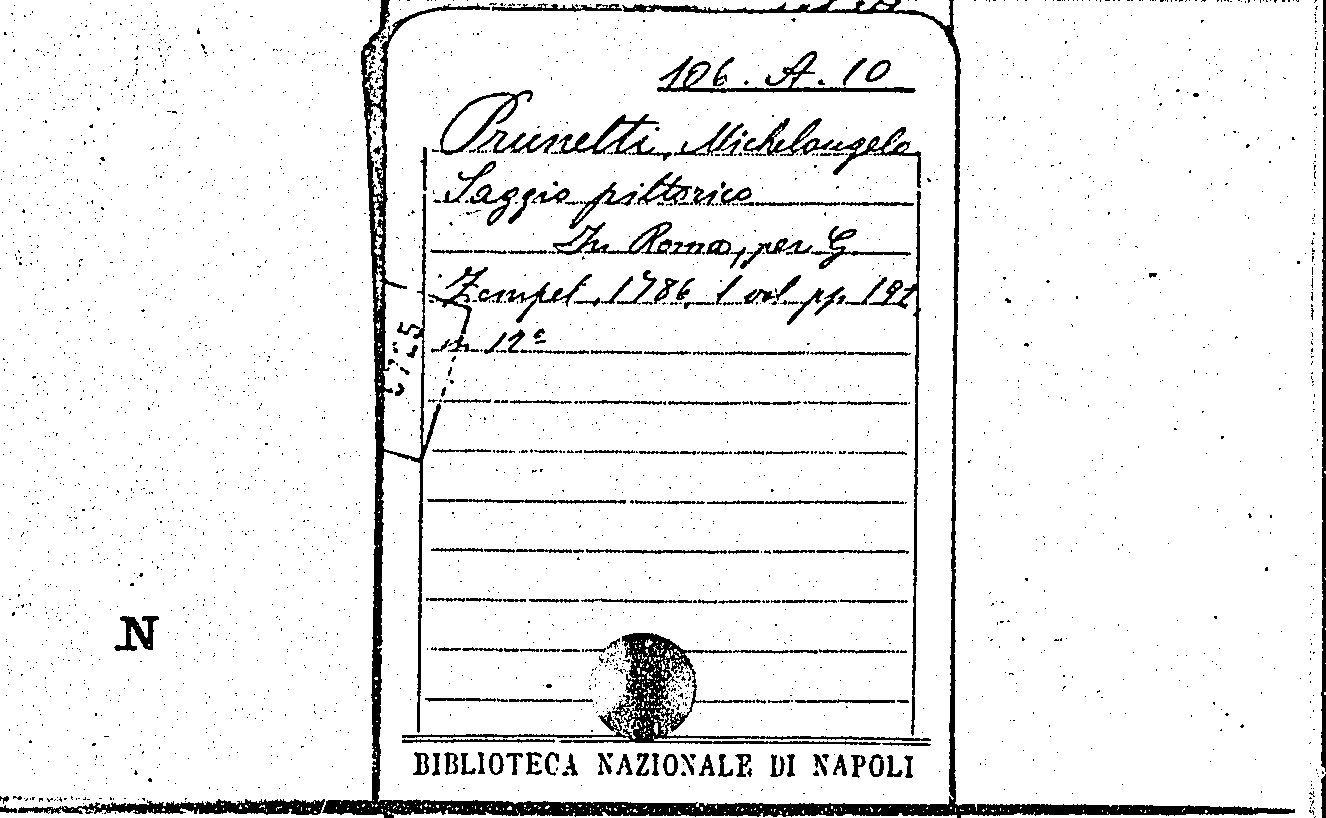 106. A. 10
Prunetti, Michelangelo
Saggio pittorico
In Roma, per G.
Zempel, 1786, 1 vol pp. 192,
in 12°
N
BIBLIOTECA NAZIONALE DI NAPOLI